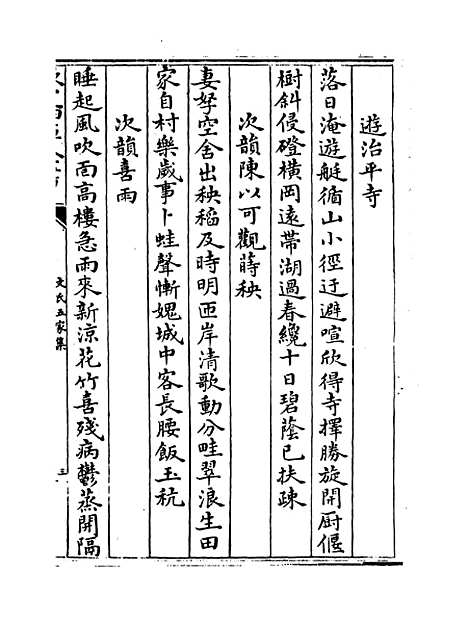 遊治平寺
落日淹遊艇循山小徑迂避喧欣得寺擇勝旋開厨偃
樹斜侵磴橫岡遠帶湖過春纔十日碧蔭已扶疎
次韻陳以可觀蒔秧
妻孥空舍出秧稻及時明匝岸清歌動分畦翠浪生田
家自村樂歲事卜蛙聲慚媿城中客長腰飯玉秔
次韻喜雨
睡起風吹面高樓急雨來新涼花竹喜殘病鬱蒸開隔
文氏五家集
三